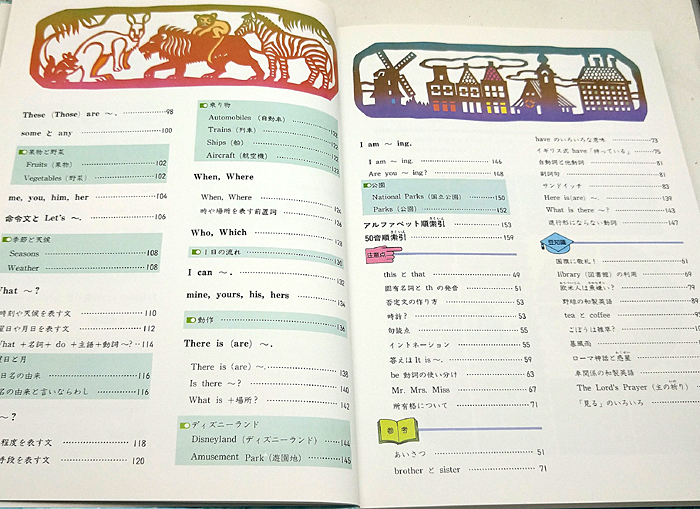 These (Those) are ～. 98
some と any 100
果物と野菜
Fruits (果物) 102
Vegetables (野菜) 102
me, you, him, her 104
命令文と Let's ～. 106
季節と天候
Seasons 108
Weather 108
What ～?
時刻や天候を表す文 110
曜日や月日を表す文 112
What ＋名詞＋ do ＋主語＋動詞～? 114
曜日と月
日名の由来 116
名の由来と言いならわし 116
～?
程度を表す文 118
手段を表す文 120
乗り物
Automobiles (自動車) 122
Trains (列車) 122
Ships (船)
Aircraft (航空機)
When, Where
When, Where
時や場所を表す前置詞
Who, Which
1日の流れ
I can ～.
mine, yours, his, hers
動作 136
There is (are) ～.
There is (are) ～. 138
Is there ～? 140
What is ＋場所? 142
ディズニーランド
Disneyland (ディズニーランド) 144
Amusement Park (遊園地) 145
I am ～ ing.
I am ～ ing. 146
Are you ～ ing? 148
公園
National Parks (国立公園) 150
Parks (公園) 152
アルファベット順索引 153
50音順索引 159
注意点
this と that 49
固有名詞と th の発音 51
否定文の作り方 53
時計? 53
句読点 55
イントネーション 55
答えは It is ～. 59
be 動詞の使い分け 63
Mr. Mrs. Miss 67
所有格について 71
参考
あいさつ 51
brother と sister 71
have のいろいろな意味 73
イギリス式 have「持っている」 75
自動詞と他動詞 81
副詞句 81
サンドイッチ 83
Here is(are) ～. 39
What is there ～? 143
進行形にならない動詞 147
豆知識
国旗に敬礼! 61
library (図書館) の利用 69
欧米人は魚嫌い? 79
野球の和製英語 89
tea と coffee 95
ごぼうは雑草?
暴風雨
ローマ神話と惑星
車関係の和製英語
The Lord's Prayer (主の祈り)
「見る」のいろいろ